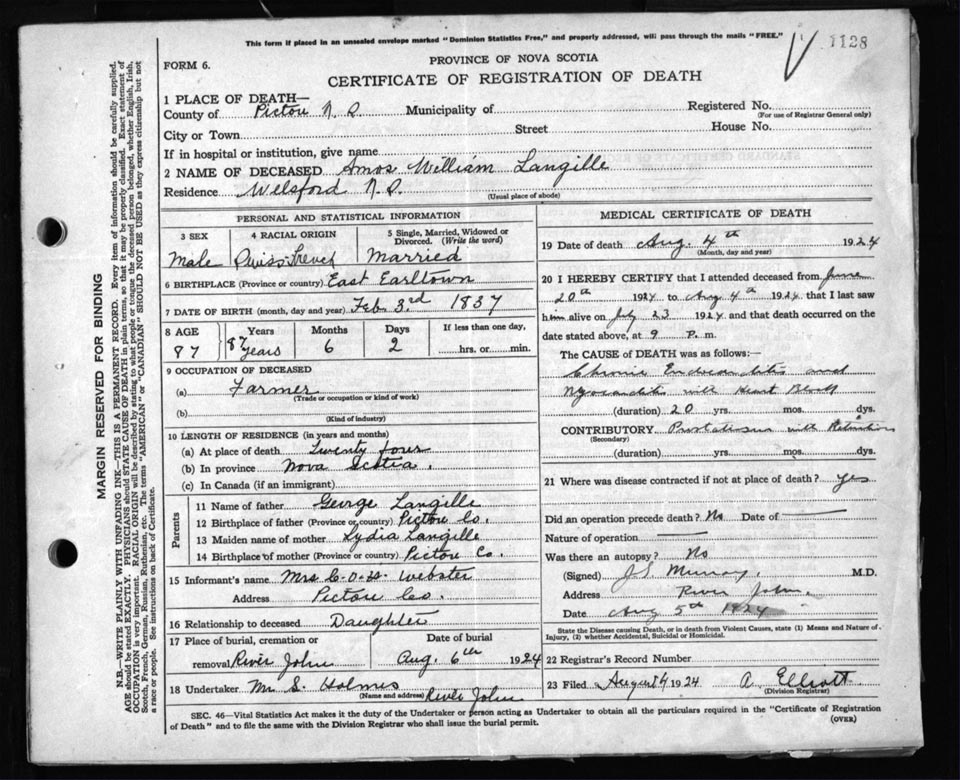 This form if placed in an unsealed envelope marked "Dominion Statistics Free," and properly addressed, will pass through the mails "FREE."
1128
FORM 6.
PROVINCE OF NOVA SCOTIA
CERTIFICATE OF REGISTRATION OF DEATH
1 PLACE OF DEATH—
County of Pictou N. S. Municipality of Registered No.
(For use of Registrar General only)
City or Town Street House No.
If in hospital or institution, give name
2 NAME OF DECEASED Amos William Langille
Residence Welsford N. S.
(Usual place of abode)
PERSONAL AND STATISTICAL INFORMATION
3 SEX 4 RACIAL ORIGIN 5 Single, Married, Widowed or Divorced. (Write the word)
Male Swiss French Married
6 BIRTHPLACE (Province or country) East Earltown
7 DATE OF BIRTH (month, day and year) Feb 3rd 1837
8 AGE Years Months Days If less than one day,
87 87 years 6 2 hrs. or min.
9 OCCUPATION OF DECEASED
(a) Farmer
(Trade or occupation or kind of work)
(b)
(Kind of industry)
10 LENGTH OF RESIDENCE (in years and months)
(a) At place of death Twenty four
(b) In province Nova Scotia.
(c) In Canada (if an immigrant)
Parents
11 Name of father George Langille
12 Birthplace of father (Province or country) Pictou Co.
13 Maiden name of mother Lydia Langille
14 Birthplace of mother (Province or country) Pictou Co.
15 Informant's name Mrs Webster
Address Pictou Co.
16 Relationship to deceased Daughter
17 Place of burial, cremation or removal River John Date of burial Aug. 6th 1924
18 Undertaker Mr S. Holmes River John
(Name and address)
MEDICAL CERTIFICATE OF DEATH
19 Date of death Aug. 4th 1924
(Month, day and year)
20 I HEREBY CERTIFY that I attended deceased from June
20th 1924 to Aug 4th 1924 that I last saw
him alive on July 23 1924 and that death occurred on the
date stated above, at 9 P. m.
The CAUSE of DEATH was as follows:
Chronic Endocarditis and
Myocarditis with Heart Block
(duration) 20 yrs. mos. dys.
CONTRIBUTORY with Retention
(Secondary)
(duration) yrs. mos. dys.
21 Where was disease contracted if not at place of death? Yes
Did an operation precede death? No Date of
Nature of operation
Was there an autopsy? No
(Signed) J S Murray M.D.
Address River John.
Date Aug 5th 1924
State the Disease causing Death, or in death from Violent Causes, state (1) Means and Nature of Injury, (2) whether Accidental, Suicidal or Homicidal.
22 Registrar's Record Number
23 Filed August 1924 A. Elliott
(Division Registrar)
SEC. 46—Vital Statistics Act makes it the duty of the Undertaker or person acting as Undertaker to obtain all the particulars required in the "Certificate of Registration
of Death" and to file the same with the Division Registrar who shall issue the burial permit. (OVER)
MARGIN RESERVED FOR BINDING
N.B.—WRITE PLAINLY WITH UNFADING INK—THIS IS A PERMANENT RECORD. Every item of information should be carefully supplied.
AGE should be stated EXACTLY. PHYSICIANS should STATE CAUSE OF DEATH in plain terms, so that it may be properly classified. Exact statement of
OCCUPATION is very important. RACIAL ORIGIN will be described by stating to what people or tongue the deceased person belonged, whether English, Irish,
Scotch, French, German, Russian, Ruthenian, etc. The terms "AMERICAN" or "CANADIAN" SHOULD NOT BE USED as they express citizenship but not
a race or people. See instructions on back of Certificate.